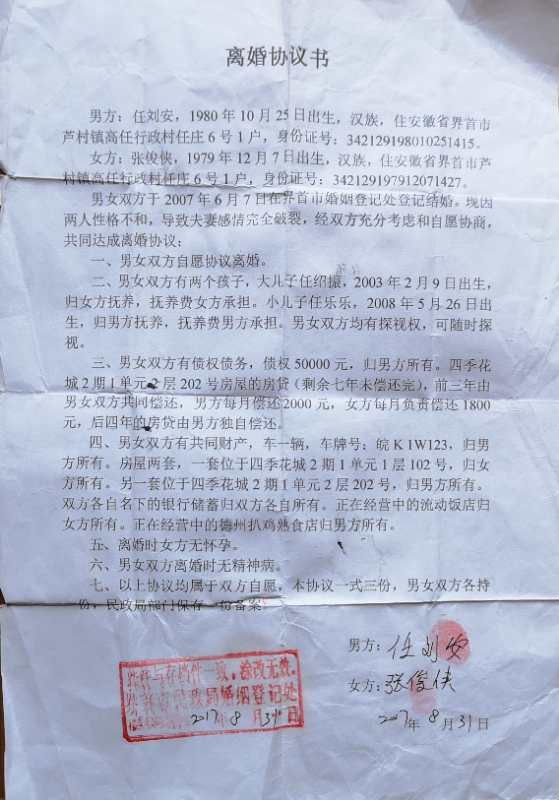 离婚协议书
男方：任刘安，1980 年 10 月 25 日出生，汉族，住安徽省界首市
芦村镇高任行政村任庄 6 号 1 户，身份证号：342129198010251415。
女方：张俊侠，1979 年 12 月 7 日出生，汉族，住安徽省界首市芦
村镇高任行政村任庄 6 号 1 户，身份证号：342129197912071427。
男女双方于 2007 年 6 月 7 日在界首市婚姻登记处登记结婚。现因
两人性格不和，导致夫妻感情完全破裂，经双方充分考虑和自愿协商，
共同达成离婚协议：
一、男女双方自愿协议离婚。
二、男女双方有两个孩子，大儿子任绍振，2003 年 2 月 9 日出生，
归女方抚养，抚养费女方承担。小儿子任乐乐，2008 年 5 月 26 日出
生，归男方抚养，抚养费男方承担。男女双方均有探视权，可随时探
视。
三、男女双方有债权债务，债权 50000 元，归男方所有。四季花
城 2 期 1 单元 2 层 202 号房屋的房贷（剩余七年未偿还完），前三年由
男女双方共同偿还，男方每月偿还 2000 元，女方每月负责偿还 1800
元，后四年的房贷由男方独自偿还。
四、男女双方有共同财产，车一辆，车牌号：皖 K 1W123，归男
方所有。房屋两套，一套位于四季花城 2 期 1 单元 1 层 102 号，归女
方所有。另一套位于四季花城 2 期 1 单元 2 层 202 号，归男方所有。
双方各自名下的银行储蓄归双方各自所有。正在经营中的流动饭店归
女方所有。正在经营中的德州扒鸡熟食店归男方所有。
五、离婚时女方无怀孕。
六、男女双方离婚时无精神病。
七、以上协议均属于双方自愿。本协议一式三份，男女双方各持
一份，民政局部门保存一份备案。
男方：任刘安
女方：张俊侠
2017年 8 月 31 日
此件与存档件一致，涂改无效。
界首市民政局婚姻登记处
2017 年 8 月 31 日